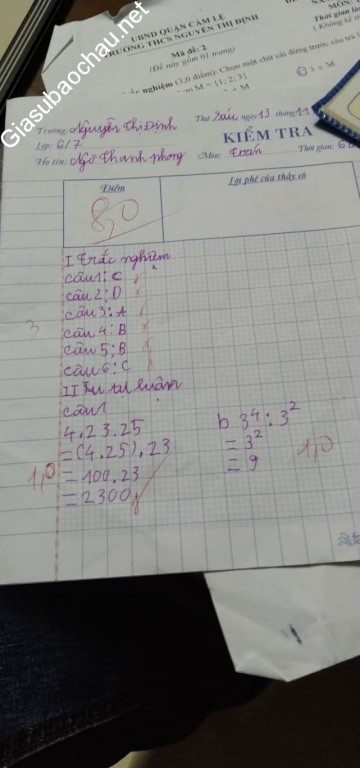 UBND QUẬN CẨM LỆ
TRƯỜNG THCS NGUYỄN THỊ ĐỊNH
Mã đề: 2
(Đề này gồm 01 trang)
nghiệm (3,0 điểm): Chọn một chữ cái đứng trước câu trả
M = {1; 2; 3}
Giasubaochau.net
Trường: Nguyễn Thị Định
Thứ Sáu ngày 13 tháng 11
Lớp: 6/7
KIỂM TRA
Họ tên: Ngô Thanh phong
Môn: Toán
Thời gian: 6
Điểm
Lời phê của thầy cô
8,0
I Trắc nghiệm
câu1: C
câu 2: D
câu 3: A
câu 4: B
câu 5: B
câu 6: C
3
II Tự luận
câu1
4.23.25
= (4.25).23
= 100.23
= 2300
1,0
b 3⁴: 3²
= 3²
= 9
1,0